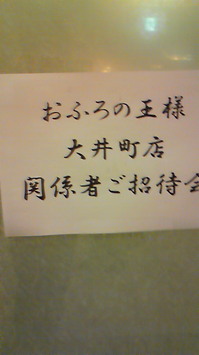 おふろの王様
大井町店
関係者ご招待会